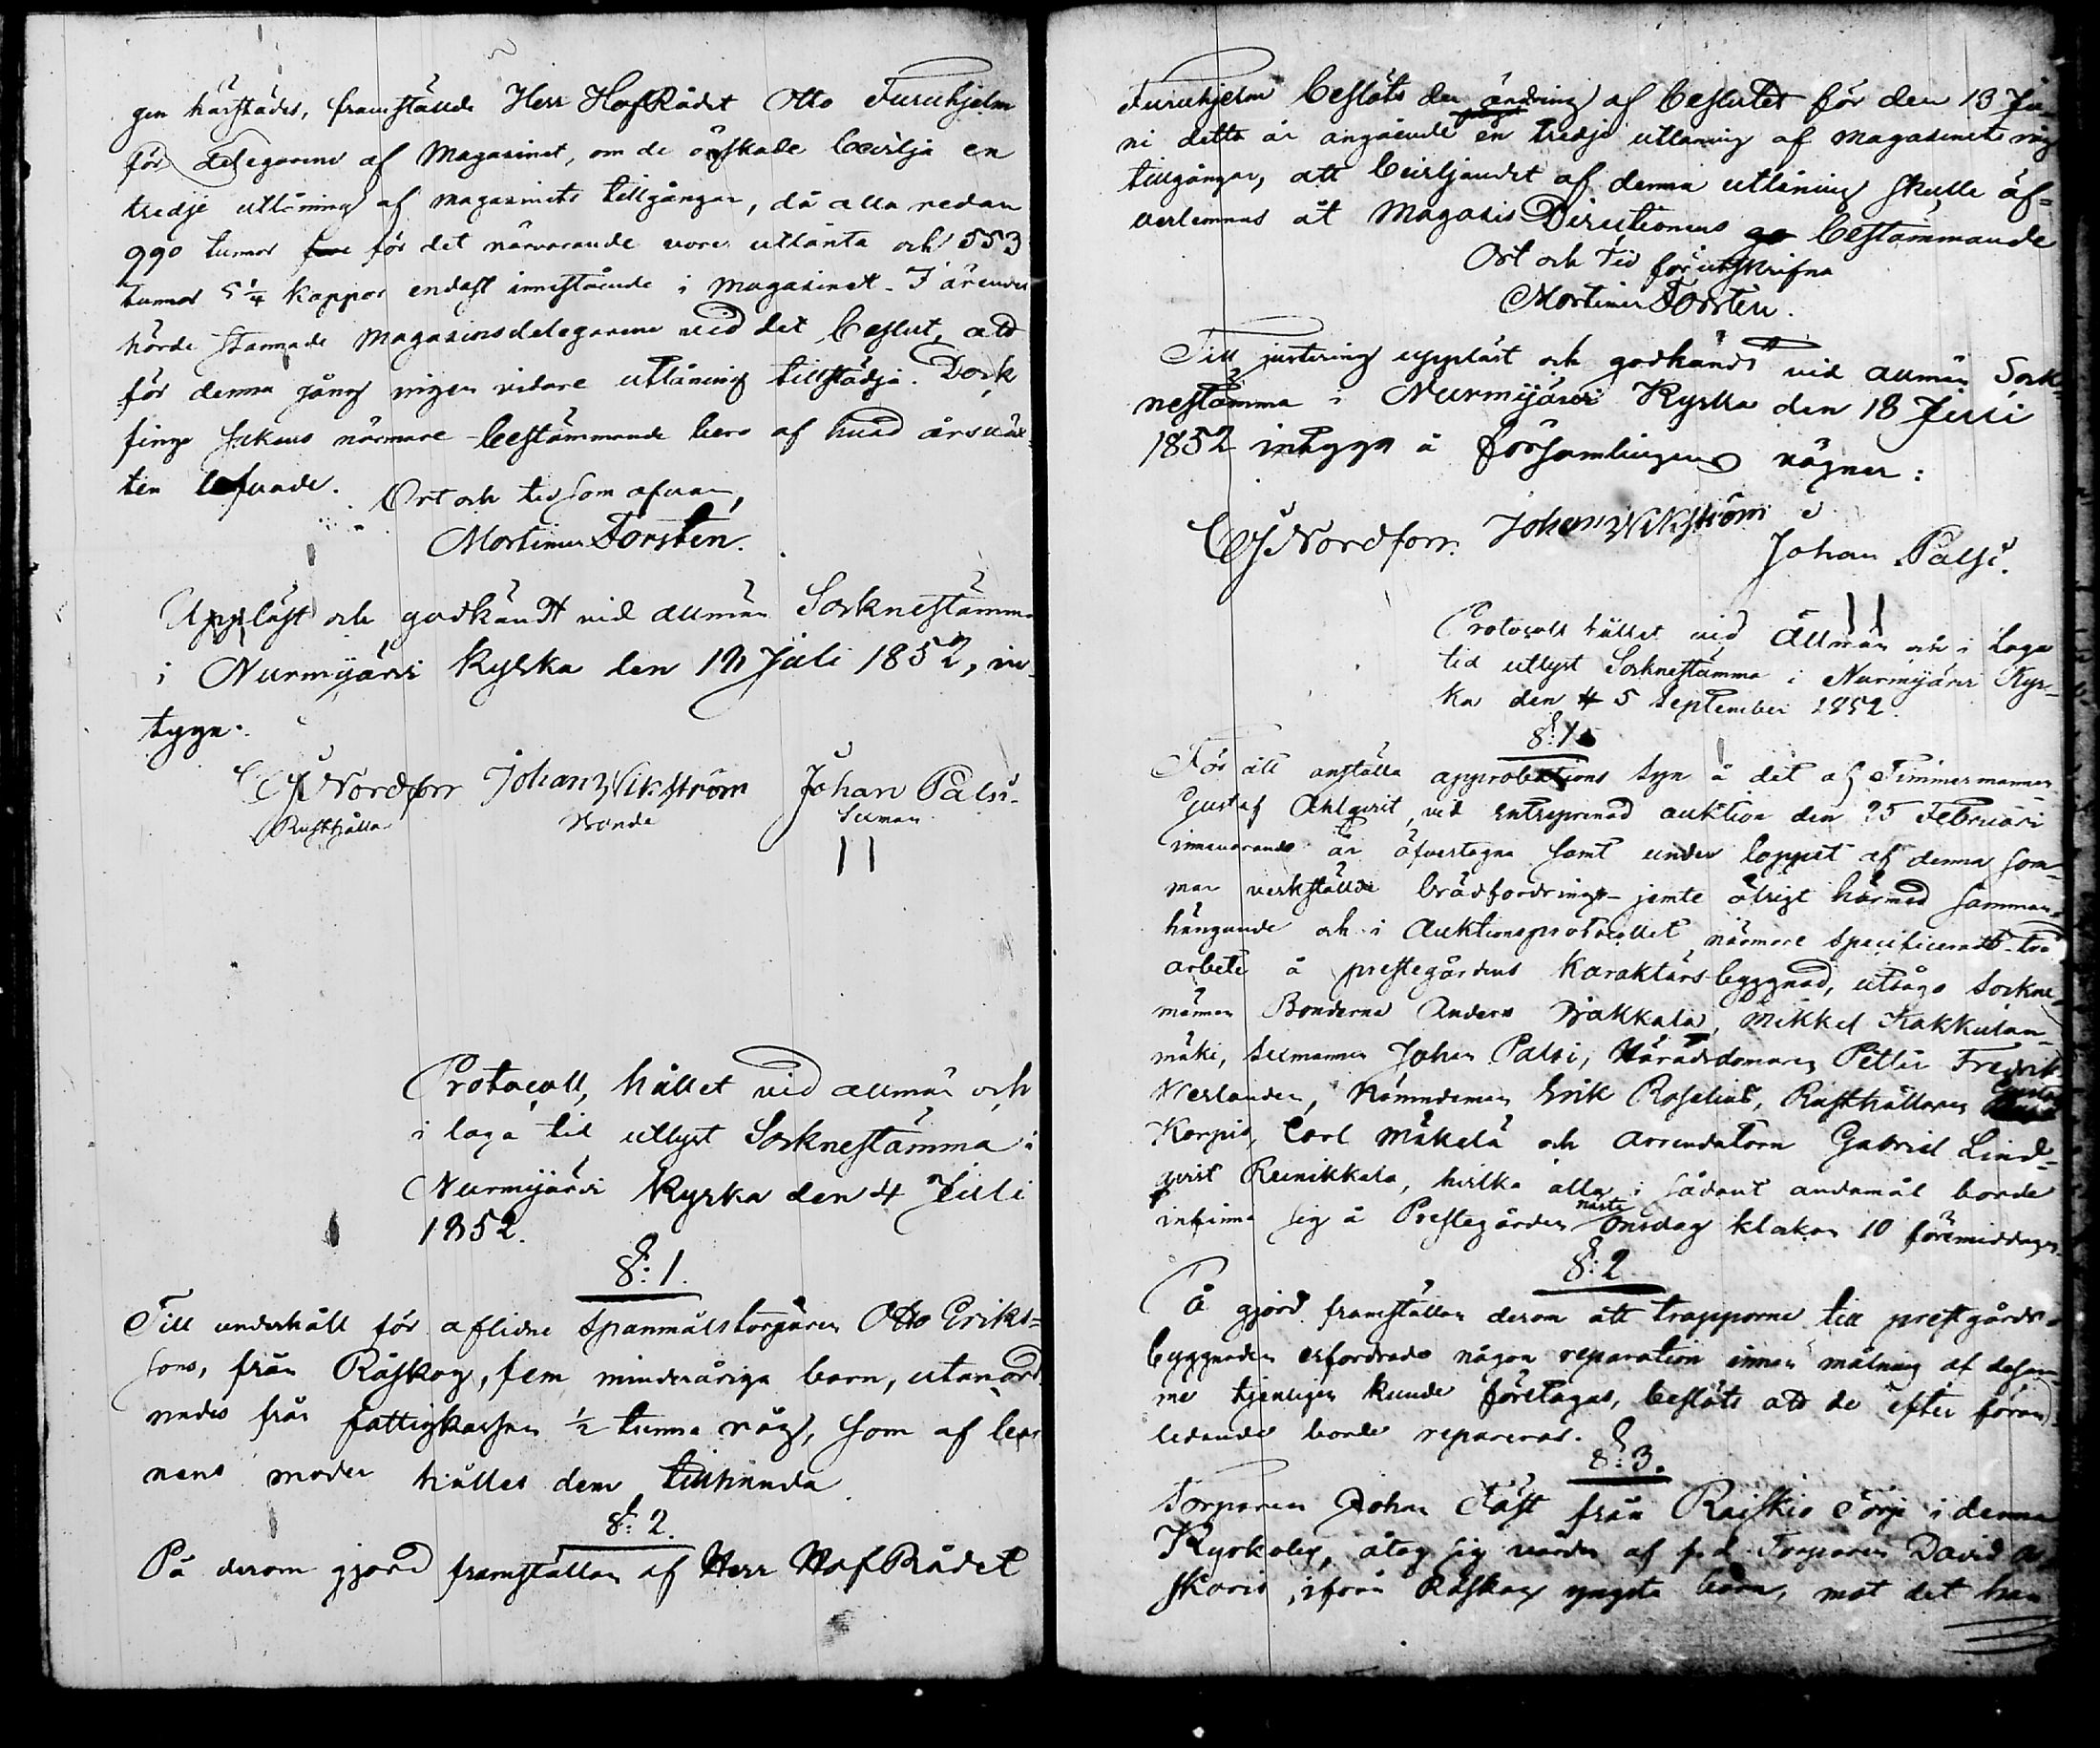 gen härstädes, framställde Herr HofRådet Otto Furuhjelm
för delegarene af Magasinet, om de önskade bevilja en
tredje utlåning af magasinets tillgångar, då alla redan
990 tunnor för det närvarande vore utlånta och 553
tunnor 5 1/4 kappor endast innestående i magasinet. I ärendet
hörde stannade Magasinsdelegarene vid det beslut, att
för denna gång ingen vidare utlåning tillstädja. Dock
finge sakens närmare bestämmande bero af hvad årsväx-
ten befunde. Ort och tid som ofvan,
Mortimer Forstén.
Uppläst och godkändt vid allmän Socknestämma
i Nurmijärvi Kyrka den 18 Juli 1852, in-
tyga:
CJ Nordforr Johan Wikström Johan Palsi.
Rusthållare Bonde Sexman
Protocoll, hållet vid allmän och
i laga tid utlyst Socknestämma i
Nurmijärvi Kyrka den 4 Juli
1852.
§: 1.
Till underhåll för aflidne Spanmålstorparen Otto Eriks-
sons, från Råskog, fem minderåriga barn, utanord-
nades från fattigkassan 1/2 tunna råg, som af bar-
nens moder hålles dem tillhanda.
§: 2.
På derom gjord framställan af Herr HofRådet
Furuhjelm beslöts den ändring af beslutet för den 13 Ju-
ni detta år angående en tredje utlåning af magasinets råg
tillgångar, att beviljandet af denna utlåning skulle öf-
verlemnas åt Magasis Directionens bestämmande
Ort och tid förutskrifna
Mortimer Forstén.
Till justering uppläst och godkändt vid allmän Sock-
nestämma i Nurmijärvi Kyrka den 18 Juli
1852 intyga å församlingens vägnar:
CJ Nordforr. Johan Wikström Johan Palsi.
Protocoll hållet vid Allmän och i laga
tid utlyst Socknestämma i Nurmijärvi Kyr-
ka den 5 September 1852.
§: 1.
För att anställa approbations syn å det af Timmermannen
Gustaf Ahlqvist, vid entreprenad auktion den 25 Februari
innevarande år öfvertagna samt under loppet af denna som-
mar verkställde brädfordrings- jemte öfrigt härmed samman-
hängande och i Auktionsprotocollet närmare specificeradt trä
arbete å prestegårdens Karaktärsbyggnad, utsågs Sockne-
männen Bonderne Anders Mikkel Kakkulan-
mäki, Sexmannen Johan Palsi, Häradsdomaren Petter Fredrik
Werlander, Nämndeman Erik Roselius, Rusthållaren Gustaf
Korpis, Carl Mäkelä och Arrendatorn Gabriel Lind-
qvist Reinikkala, hvilka alla i sådant andamål borde
infinna sig å Prestegården näste Onsdag klockan 10 föremiddagen.
§: 2
På gjord framställan derom att trapporne till prestgårds-
byggnaden erfordrade någon reparation innan målning af desam-
me tjenligen kunde företagas, beslöts att de efter föran-
ledande borde repareras.
§: 3.
Torparen Johan Fäst från Raiskio Torp i denna
Kyrkoby, åtog sig vården af f.d. Torparen David
ifrån Råskog yngsta barn, mot det han